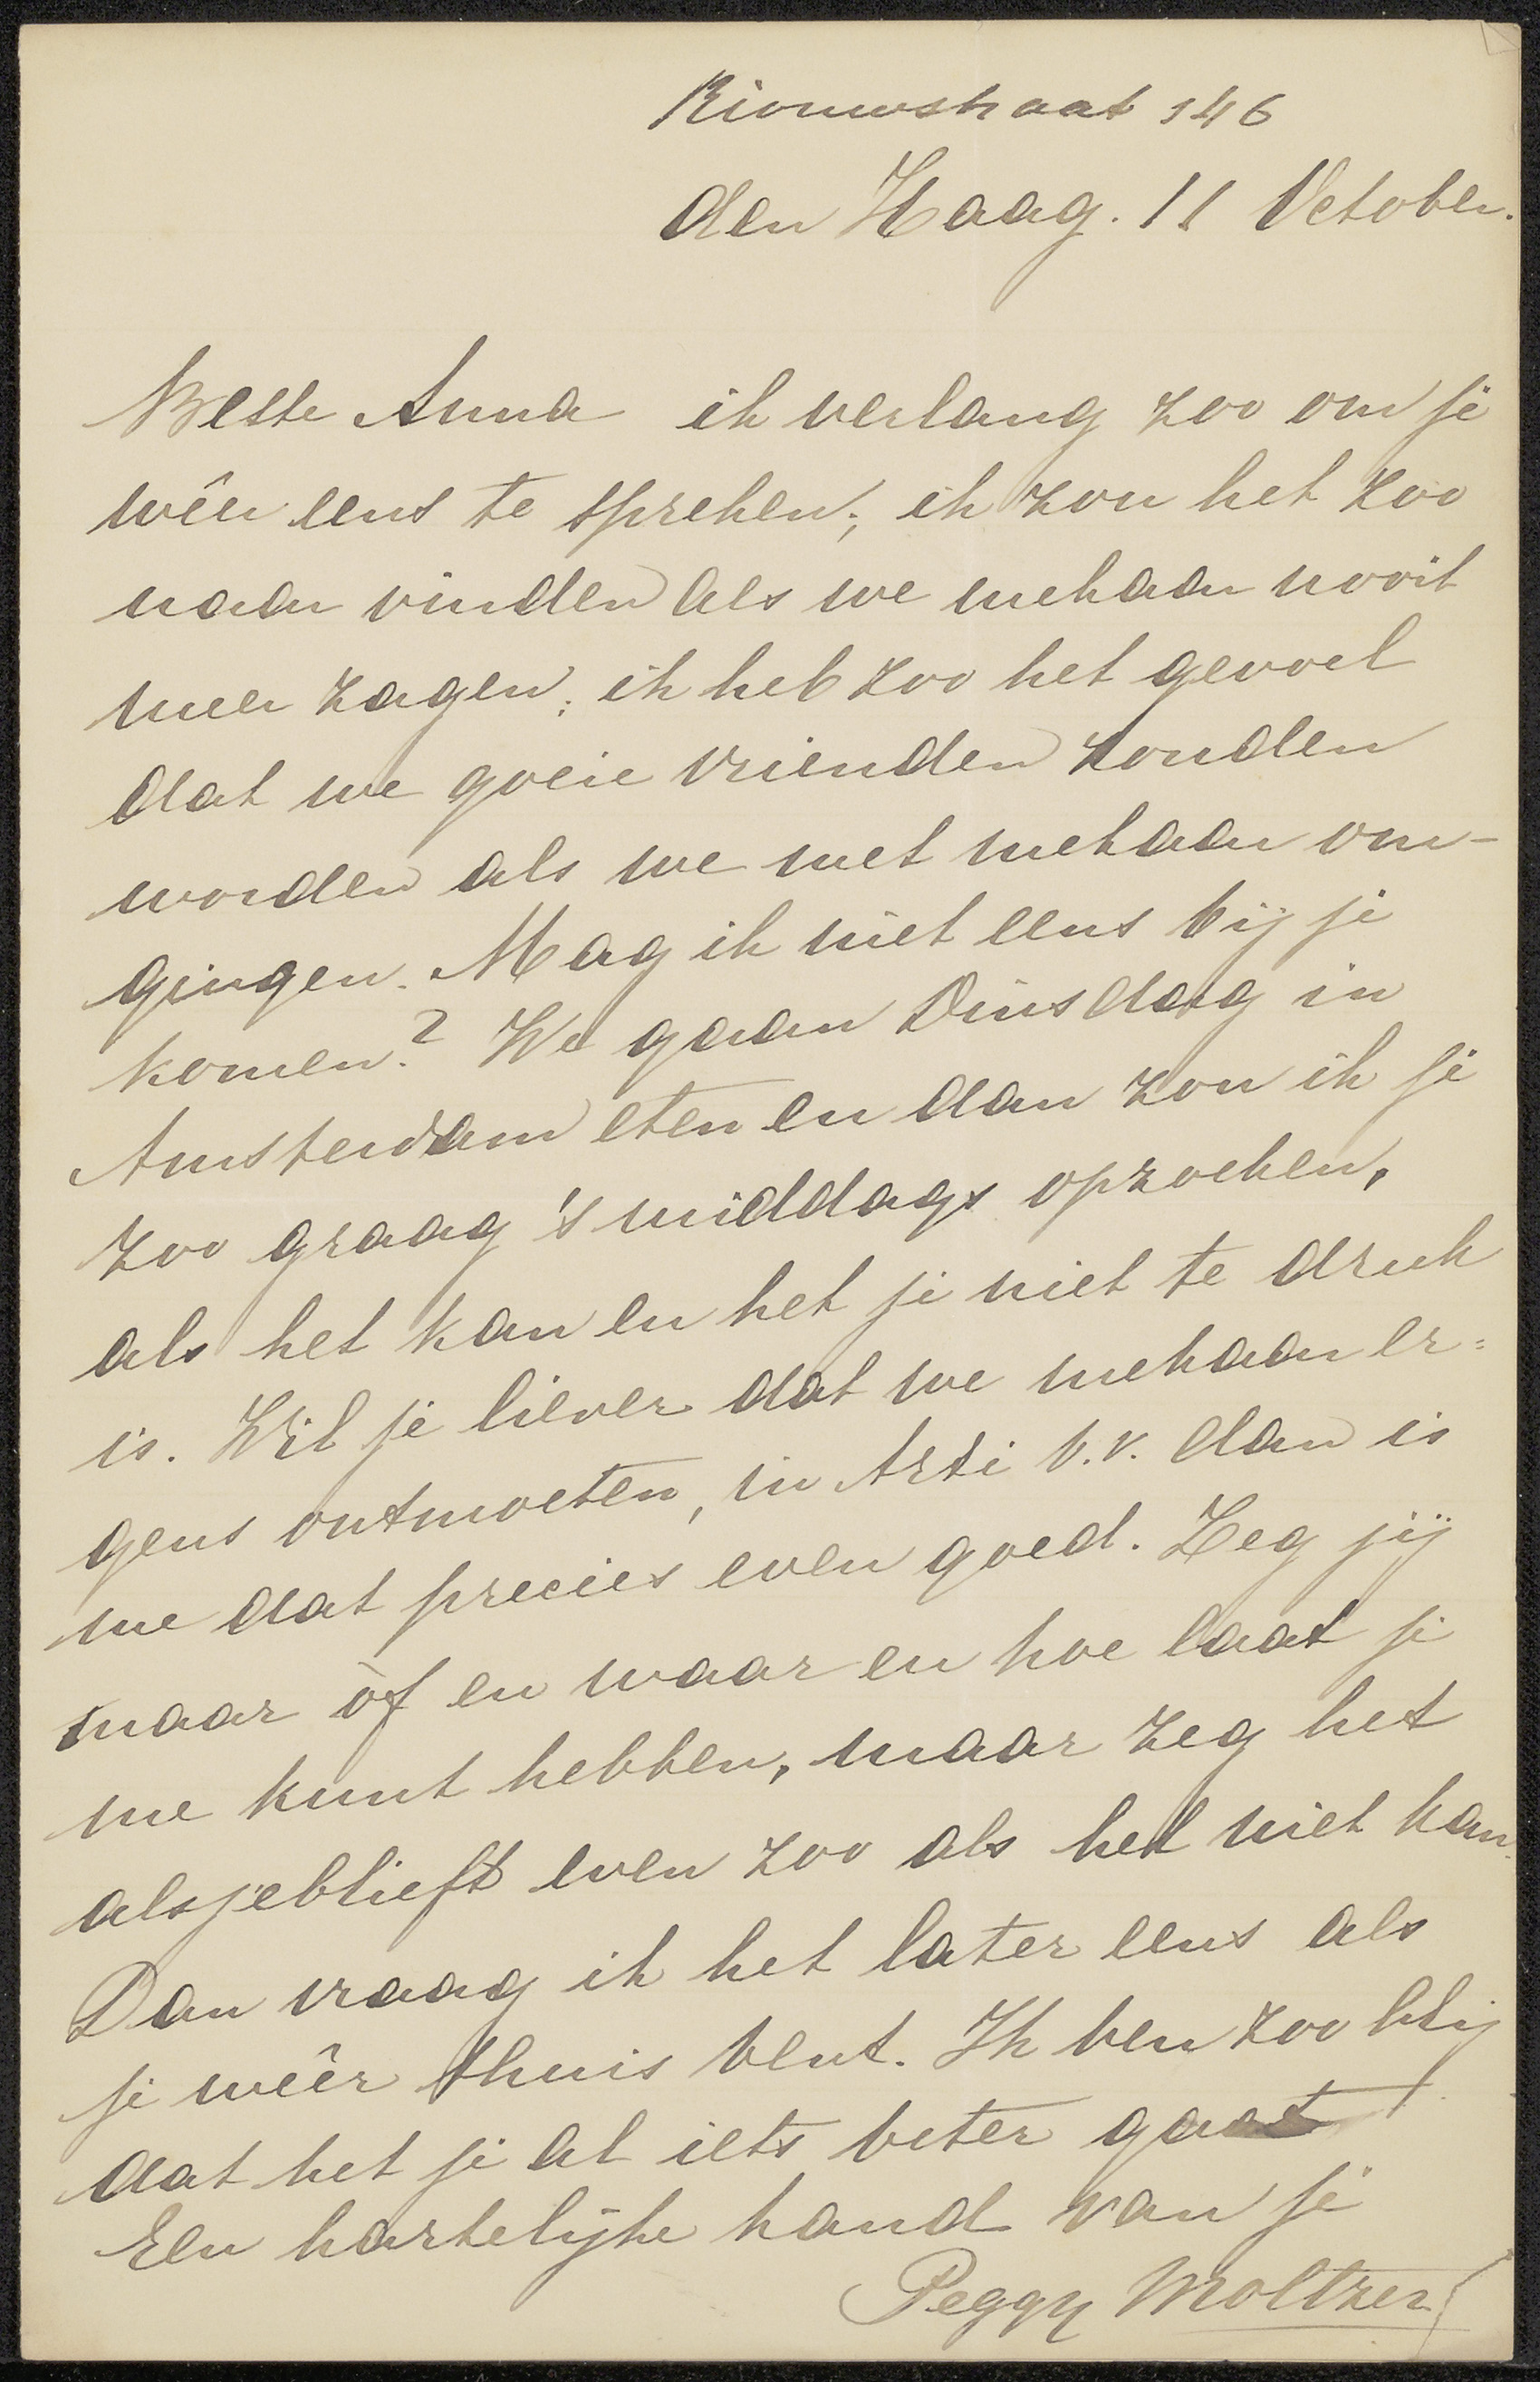 Riouwstraat 146
den Haag. 11 October.
Beste Anna ik verlang zoo om je
wêer eens te spreken; ik zou het zoo
naar vinden als we mekaar nooit
meer zagen; ik heb zoo het gevoel
dat we goeie vrienden zouden
worden als we met mekaar om-
gingen. Mag ik niet eens bij je
komen? We gaan Dinsdag in
Amsterdam eten en dan zou ik je
zoo graag 's middags opzoeken,
als het kan en het je niet te druk
is. Wil je liever dat we mekaar er=
gens ontmoeten, in Arti b.v. dan is
me dat precies even goed. Zeg jij
maar òf en waar en hoe laat je
me kunt hebben, maar zeg het
alsjeblieft even zoo als het niet kan.
Dan vraag ik het later eens als
je wêer thuis bent. Ik ben zoo blij
dat het je al iets beter gaat
Een hartelijke hand van je
Peggy Moltzer